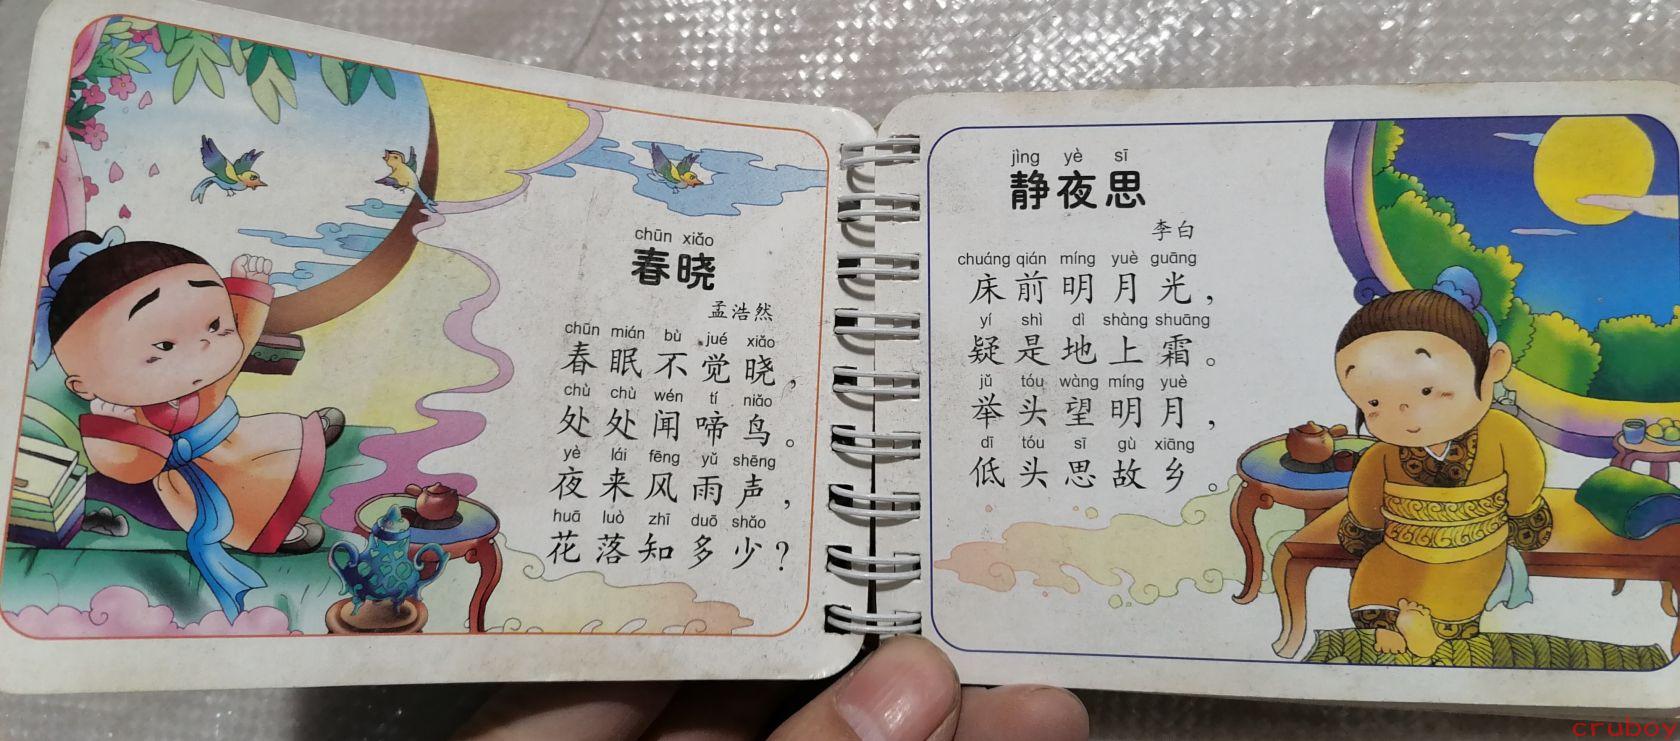 chūn xiǎo
春晓
孟浩然
chūn mián bù jué xiǎo
春眠不觉晓，
chù chù wén tí niǎo
处处闻啼鸟。
yè lái fēng yǔ shēng
夜来风雨声，
huā luò zhī duō shǎo
花落知多少？
jìng yè sī
静夜思
李白
chuáng qián míng yuè guāng
床前明月光，
yí shì dì shàng shuāng
疑是地上霜。
jǔ tóu wàng míng yuè
举头望明月，
dī tóu sī gù xiāng
低头思故乡。
cruboy